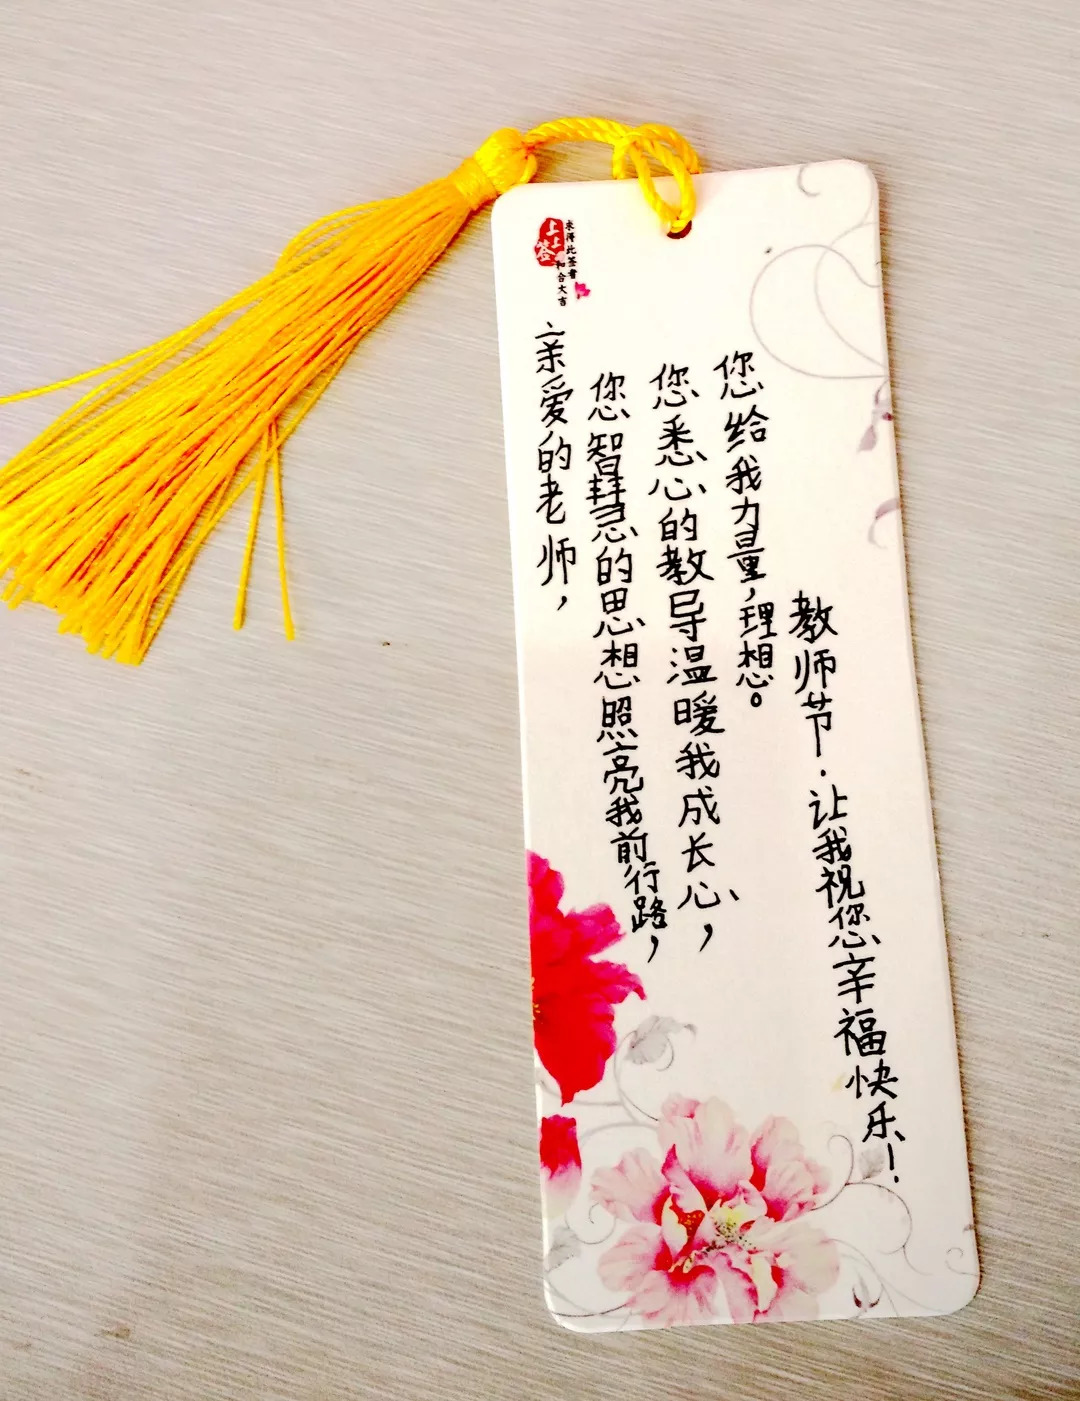 上上签
求得此签者
和合大吉
亲爱的老师，
您智慧的思想照亮我前行路，
您悉心的教导温暖我成长心，
您给我力量，理想。
教师节·让我祝您幸福快乐！